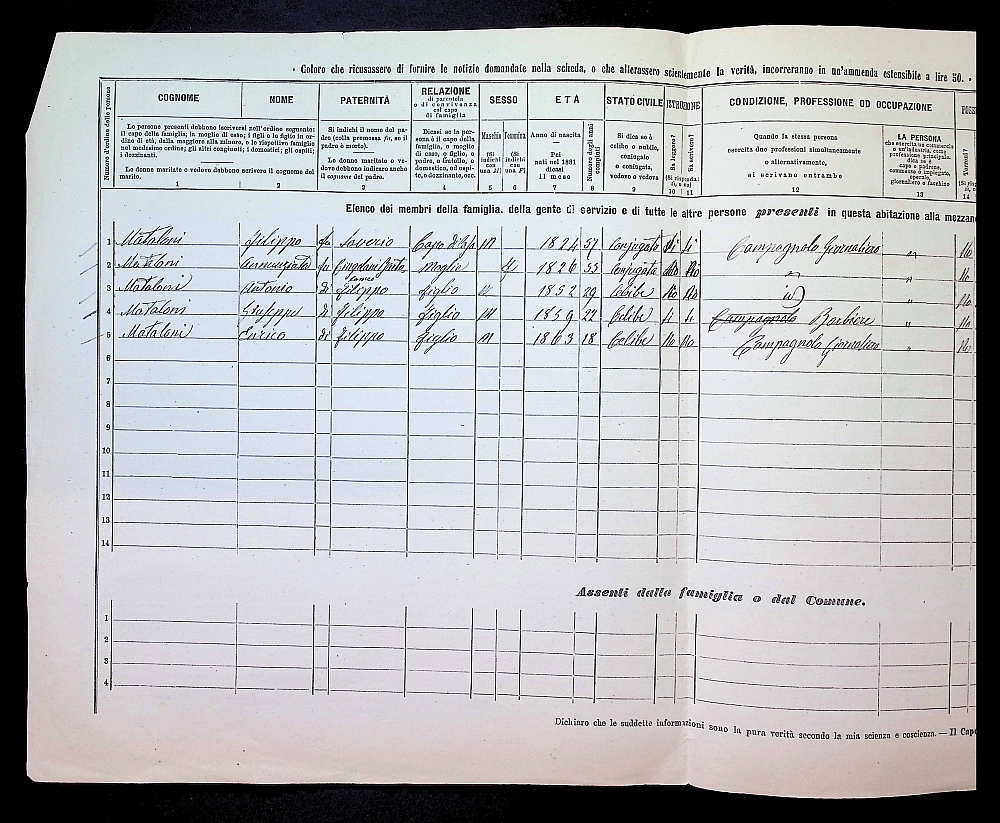 • Coloro che ricusassero di fornire le notizie domandate nella scheda, o che alterassero scientemente la verità, incorreranno in un'ammenda estensibile a lire 50. •
Numero d'ordine delle persone
COGNOME
NOME
PATERNITÀ
RELAZIONE
di parentela
o di convivenza
col capo
di famiglia
SESSO
ETÀ
STATO CIVILE
ISTRUZIONE
CONDIZIONE, PROFESSIONE OD OCCUPAZIONE
Le persone presenti debbono iscriversi nell'ordine seguente:
il capo della famiglia; la moglie di esso; i figli o le figlie in or-
dine di età, dalla maggiore alla minore, e le rispettive famiglie
nel medesimo ordine; gli altri congiunti; i domestici; gli ospiti;
i dozzinanti.
Le donne maritate o vedove debbono scrivere il cognome del
marito.
Si indichi il nome del pa-
dre (colla premessa fu, se il
padre è morto).
Le donne maritate o ve-
dove debbono indicare anche
il cognome del padre.
Dicasi se la per-
sona è il capo della
famiglia, o moglie
di esso, o figlio, o
padre, o fratello, o
domestico, od ospi-
te, o dozzinante, ecc.
Maschio
(Si
indichi
con
una M)
Femmina
(Si
indichi
con
una F)
Anno di nascita
—
Pei
nati nel 1881
dicasi
il mese
Numero degli anni
compiuti
Si dica se è
celibe o nubile,
coniugato
o coniugata,
vedovo o vedova
Sa leggere?
Sa scrivere?
(Si risponda:
si, o no)
Quando la stessa persona
esercita due professioni simultaneamente
o alternativamente,
si scrivano entrambe
LA PERSONA
che esercita un commercio
o un'industria, come
professione principale,
dica se è
capo o padrone,
commesso o impiegato,
operaio,
giornaliero o facchino
Terreni?
1 2 3 4 5 6 7 8 9 10 11 12 13 14
Elenco dei membri della famiglia, della gente di servizio e di tutte le altre persone presenti in questa abitazione alla mezzan
1 Mataloni Filippo fu Saverio Capo di Casa M 1824 57 Conjugato Si Si Campagnolo Giornaliero " No
2 Mataloni Annunziata fu Moglie F 1826 55 Conjugata No No " " No
3 Mataloni Antonio di Filippo figlio M 1852 29 Celibe No No id " No
4 Mataloni Giuseppe di Filippo figlio M 1859 22 Celibe Si Si Campagnolo Barbiere " No
5 Mataloni Enrico di Filippo figlio M 1863 18 Celibe No No Campagnolo Giornaliero " No
6
7
8
9
10
11
12
13
14
Assenti dalla famiglia o dal Comune.
1
2
3
4
Dichiaro che le suddette informazioni sono la pura verità secondo la mia scienza e coscienza. — Il Cap